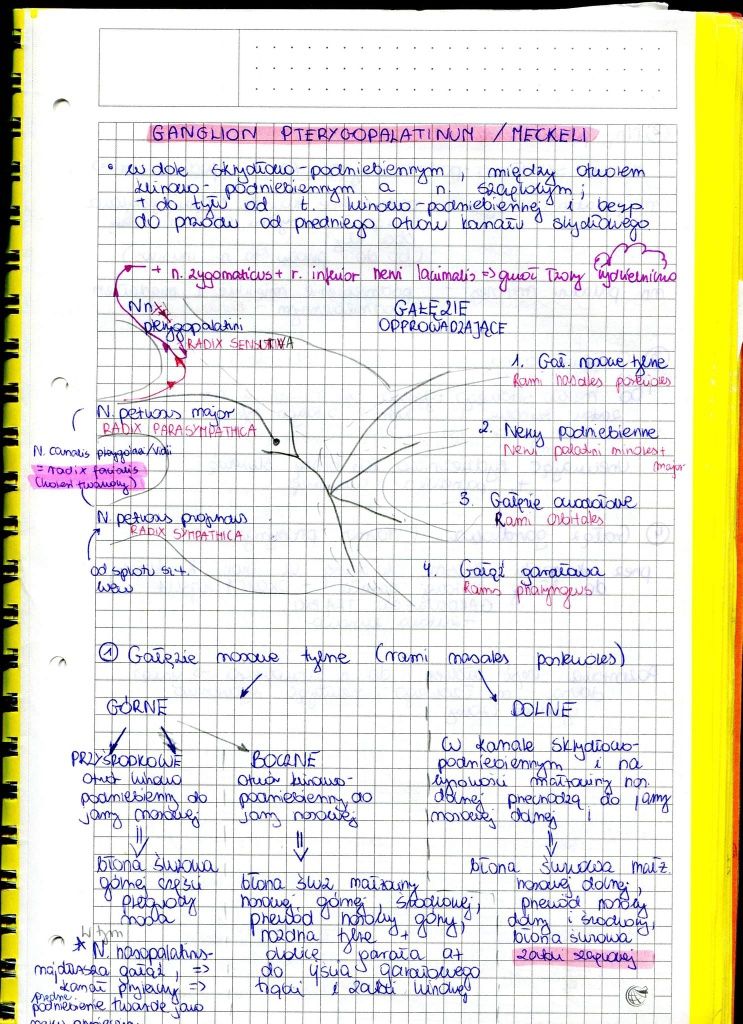 GANGLION PTERYGOPALATINUM / MECKELI
• w dole skrzydłowo-podniebiennym, między otworem
klinowo-podniebiennym a n. szczękowym;
+ do tyłu od t. klinowo-podniebiennej i bezp.
do przodu od przedniego otworu kanału skrzydłowego
+ n. zygomaticus + r. inferior nervi lacrimalis => gruczoł łzowy wydzielniczo
Nn.
pterygopalatini
RADIX SENSITIVA
GAŁĘZIE
ODPROWADZAJĄCE
1. Gał. nosowe tylne
Rami nasales posteriores
N. petrosus major
RADIX PARASYMPATHICA
2. Nerwy podniebienne
Nervi palatini minores +
major
N. canalis pterygoidei/Vidii
= radix facialis
(korzeń twarzowy)
3. Gałęzie oczodołowe
Rami orbitales
N. petrosus profundus
RADIX SYMPATHICA
od splotu
4. Gałąź gardłowa
Ramus pharyngeus
① Gałęzie nosowe tylne (rami nasales posteriores)
GÓRNE
DOLNE
PRZYŚRODKOWE
otwór klinowo
podniebienny do
jamy nosowej
BOCZNE
otwór klinowo-
podniebienny do
jamy nosowej
W kanale skrzydłowo-
podniebiennym i na
wysokości małżowiny nos.
dolnej przechodzą do jamy
nosowej dolnej
błona śluzowa
górnej części
przegrody
nosa
błona śluz małżowiny
nosowej górnej, środkowej,
przewód nosowy górny,
nozdrza tylne +
okolice gardła aż
do ujścia gardłowego
trąbki i zatoki klinowej
błona śluzowa małż.
nosowej dolnej,
przewód nosowy
dolny i środkowy,
błona śluzowa
zatoki szczękowej
W tym
* N. nasopalatinus -
najdłuższa gałąź, =>
kanał przysieczny =>
przednie
podniebienie twarde jako